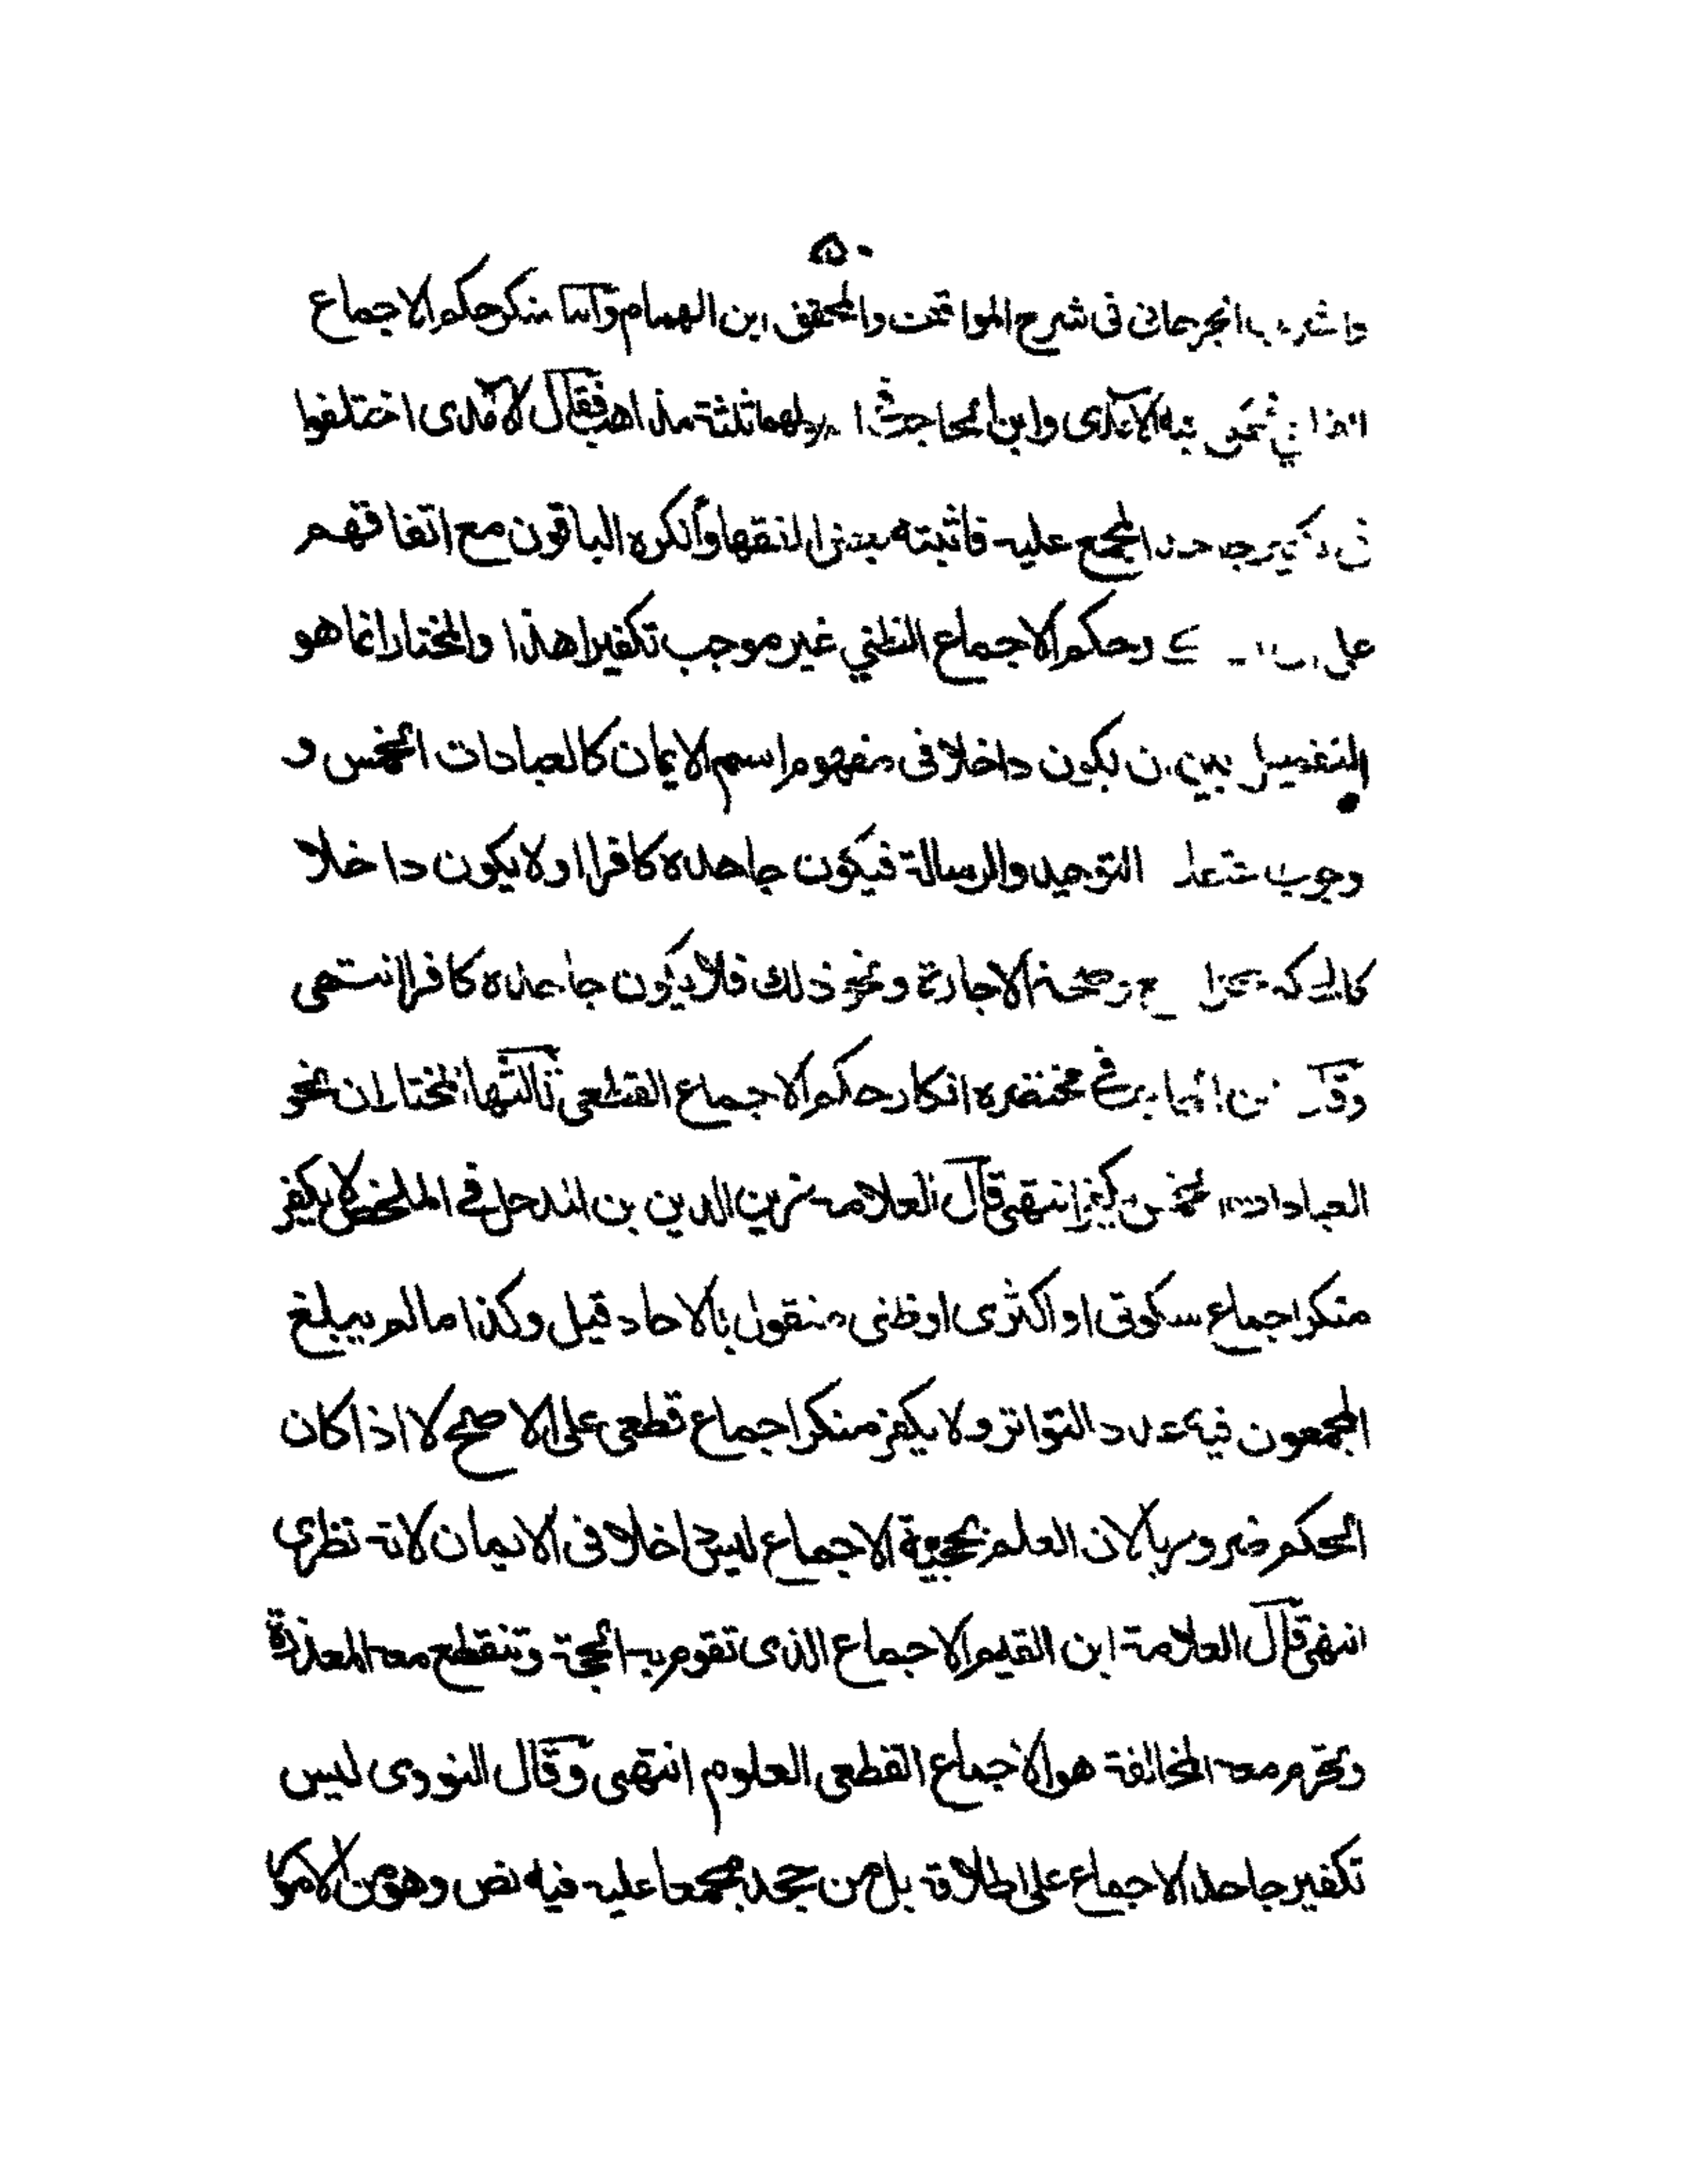 ٥٠
الجرجانى فى شرح المواقف والمحقق ابن الهمام وأما منكر حكم الاجماع
الآمدى وابن الحاجب ثلثة مذاهب فقال الآمدى اختلفوا
المجمع عليه فاثبته بعض الفقهاء وأنكره الباقون مع اتفاقهم
على حكم الاجماع الظني غير موجب تكفيرا هذا والمختار انما هو
التفصيل بين ان يكون داخلا فى مفهوم اسم الايمان كالعبادات الخمس و
وجوب التوحيد والرسالة فيكون جاحده كافرا او لا يكون داخلا
الاجارة ونحو ذلك فلا يكون جاحده كافرا انتهى
مختصره انكار حكم الاجماع القطعي ثالثها المختار ان نحو
العبادات الخمس يكفر انتهى قال العلامة زين الدين بن المدحل فى الملخص لا يكفر
منكر اجماع سكوتى او اكثرى او ظنى منقول بالاحاد قيل وكذا ما لم يبلغ
المجمعون فيه عدد التواتر ولا يكفر منكر اجماع قطعى على الاصح لا اذا كان
الحكم ضروريا لان العلم بحجية الاجماع ليس داخلا فى الايمان لانه نظرى
انتهى قال العلامة ابن القيم الاجماع الذى تقوم به الحجة وتنقطع معه المعذرة
وتحرم معه المخالفة هو الاجماع القطعى العلوم انتهى وقال النووى ليس
تكفير جاحد الاجماع على اطلاقه بل من جحد مجمعا عليه فيه نص وهو من الامور